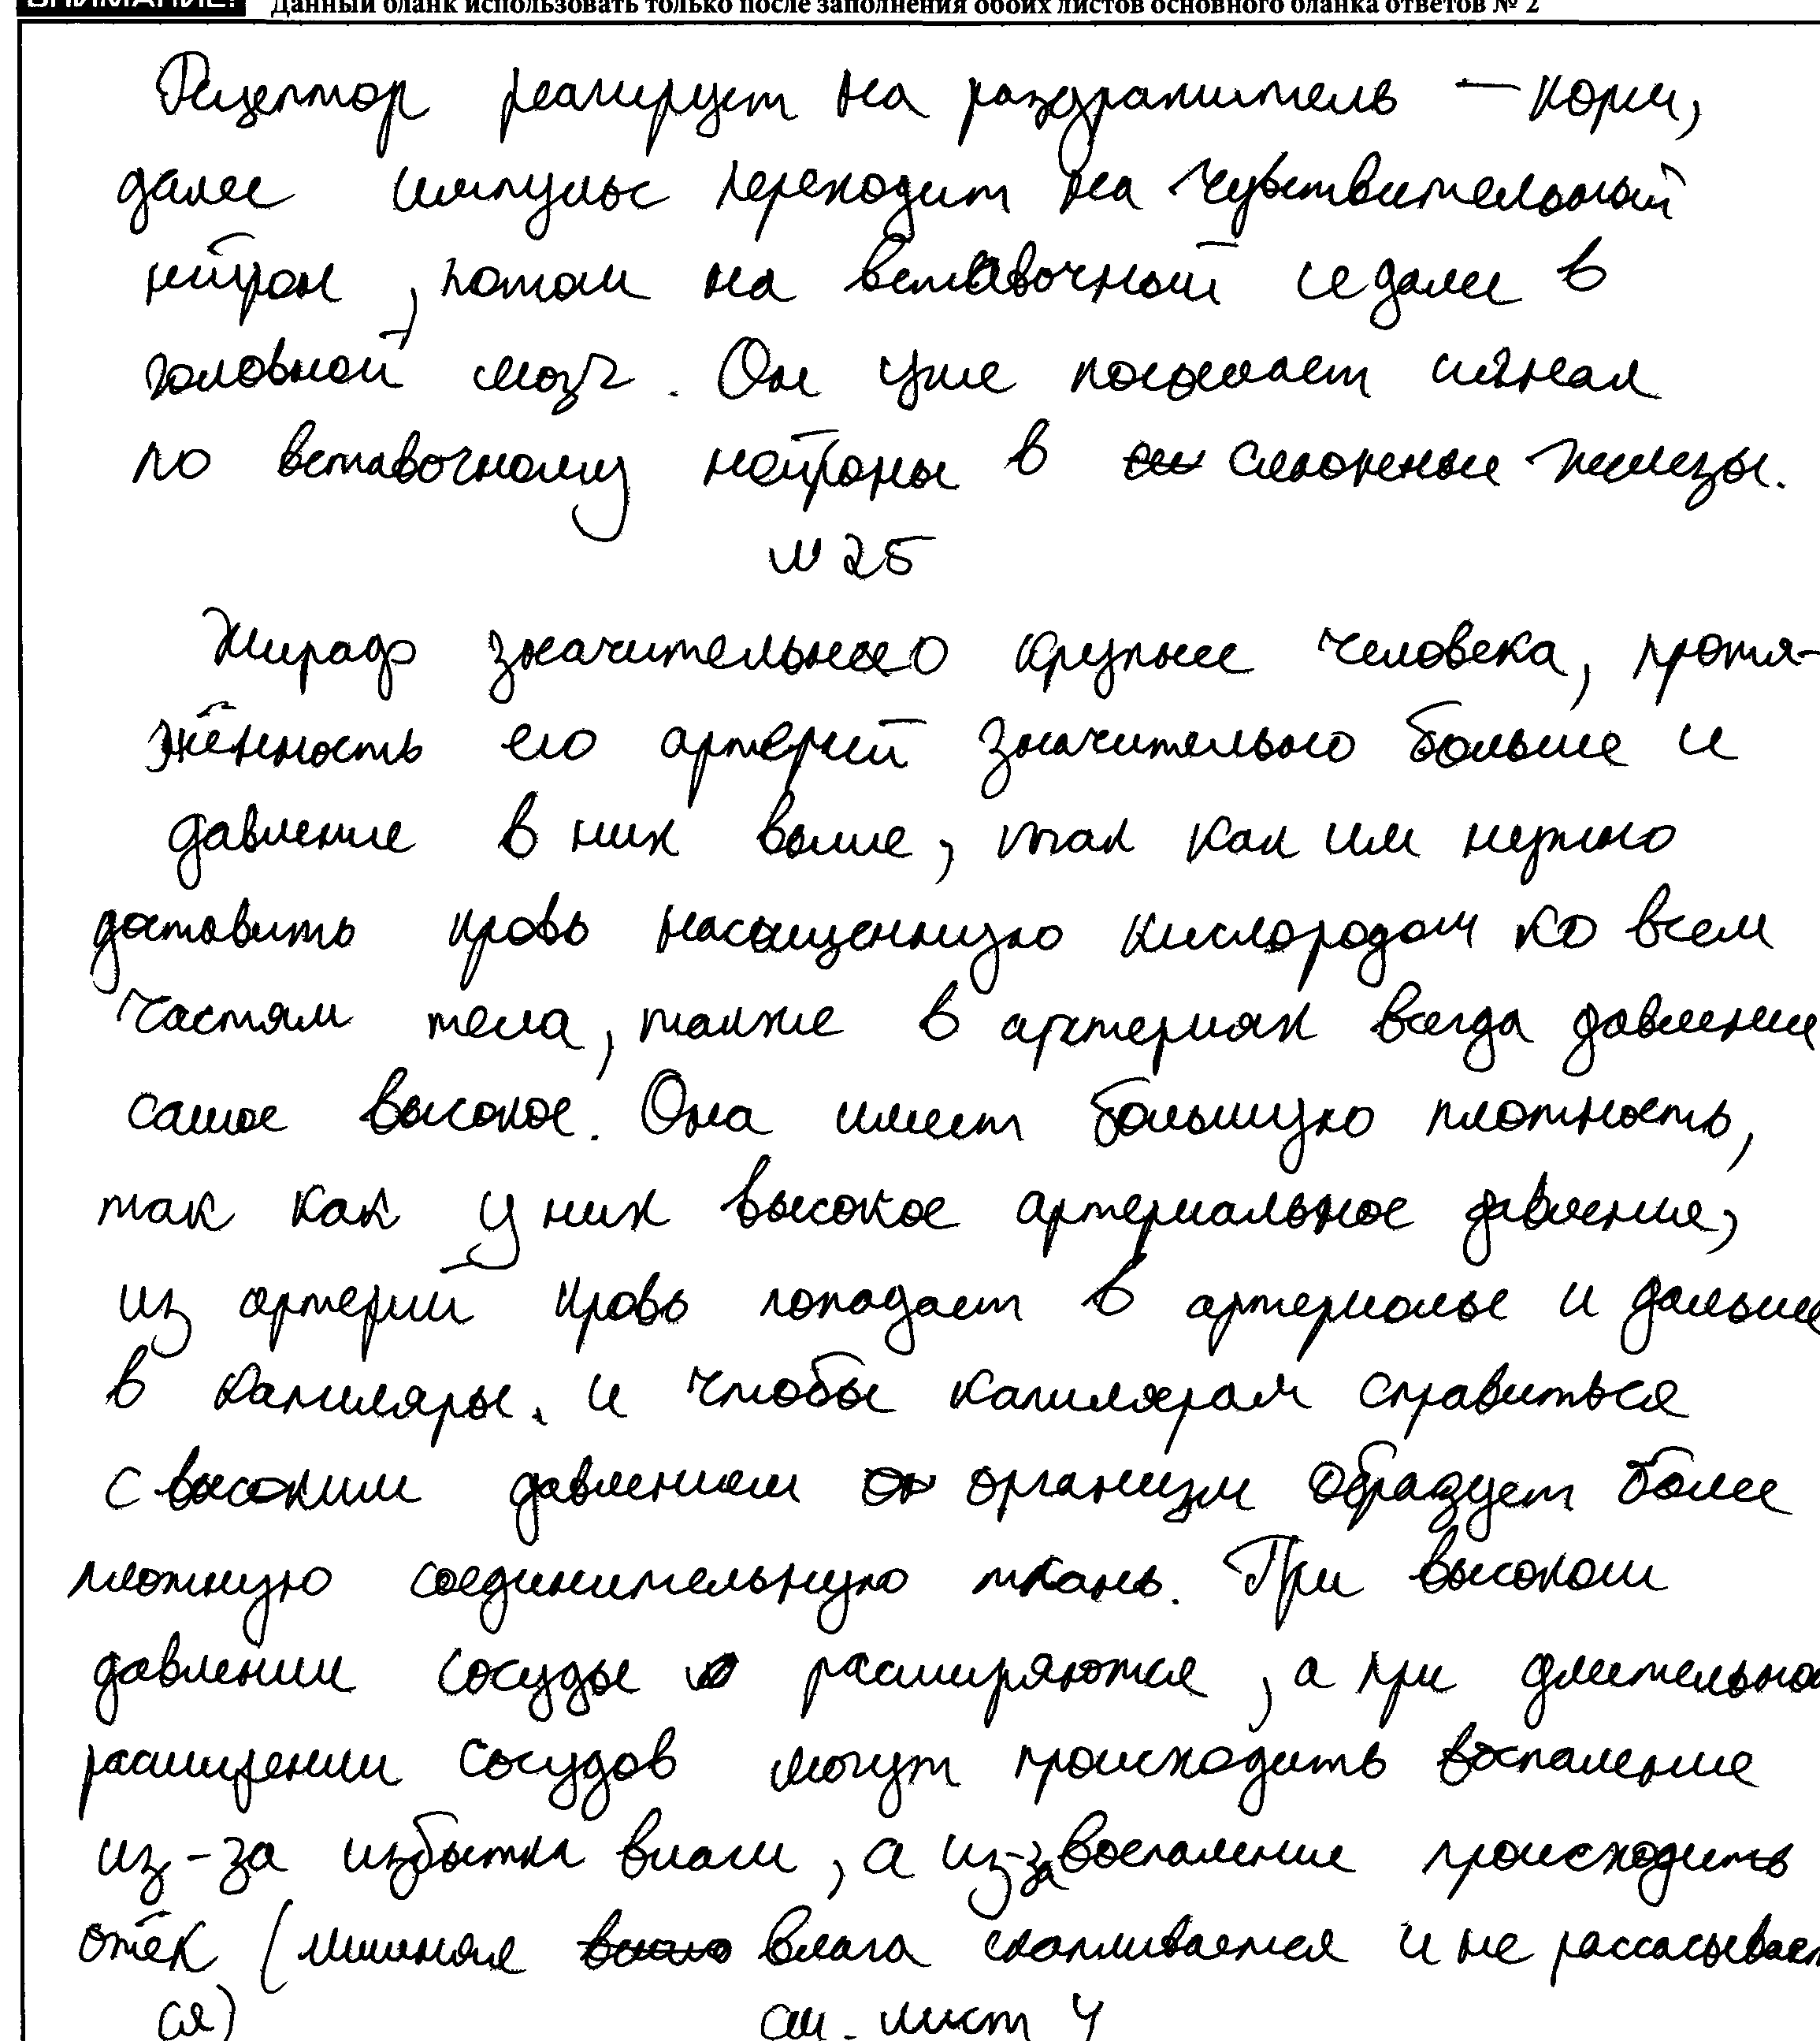 ВНИМАНИЕ! Данный бланк использовать только после заполнения обоих листов основного бланка ответов № 2
Рецептор реагирует на раздражитель — корм,
далее импульс переходит на чувствительный
нейрон, потом на вставочный и далее в
головной мозг. Он уже посылает сигнал
по вставочному нейроны в слюнные железы.
N 25
Жираф значительнее крупнее человека, протя-
жённость его артерий значительно больше и
давление в них выше, так как им нужно
доставить кровь насыщенную кислородом ко всем
частям тела, также в артериях всегда давление
самое высокое. Она имеет большую плотность,
так как у них высокое артериальное давление,
из артерий кровь попадает в артериолы и дальше
в капиляры. и чтобы капилярам справиться
с высоким давлением организм образует более
плотную соединительную ткань. При высоком
давлении сосуды расширяются, а при длительно
расширении сосудов могут происходить воспаление
из-за избытка влаги, а из-за воспаление происходить
отёк (лишняя влага скапливается и не рассасывает
ся) см. лист 4